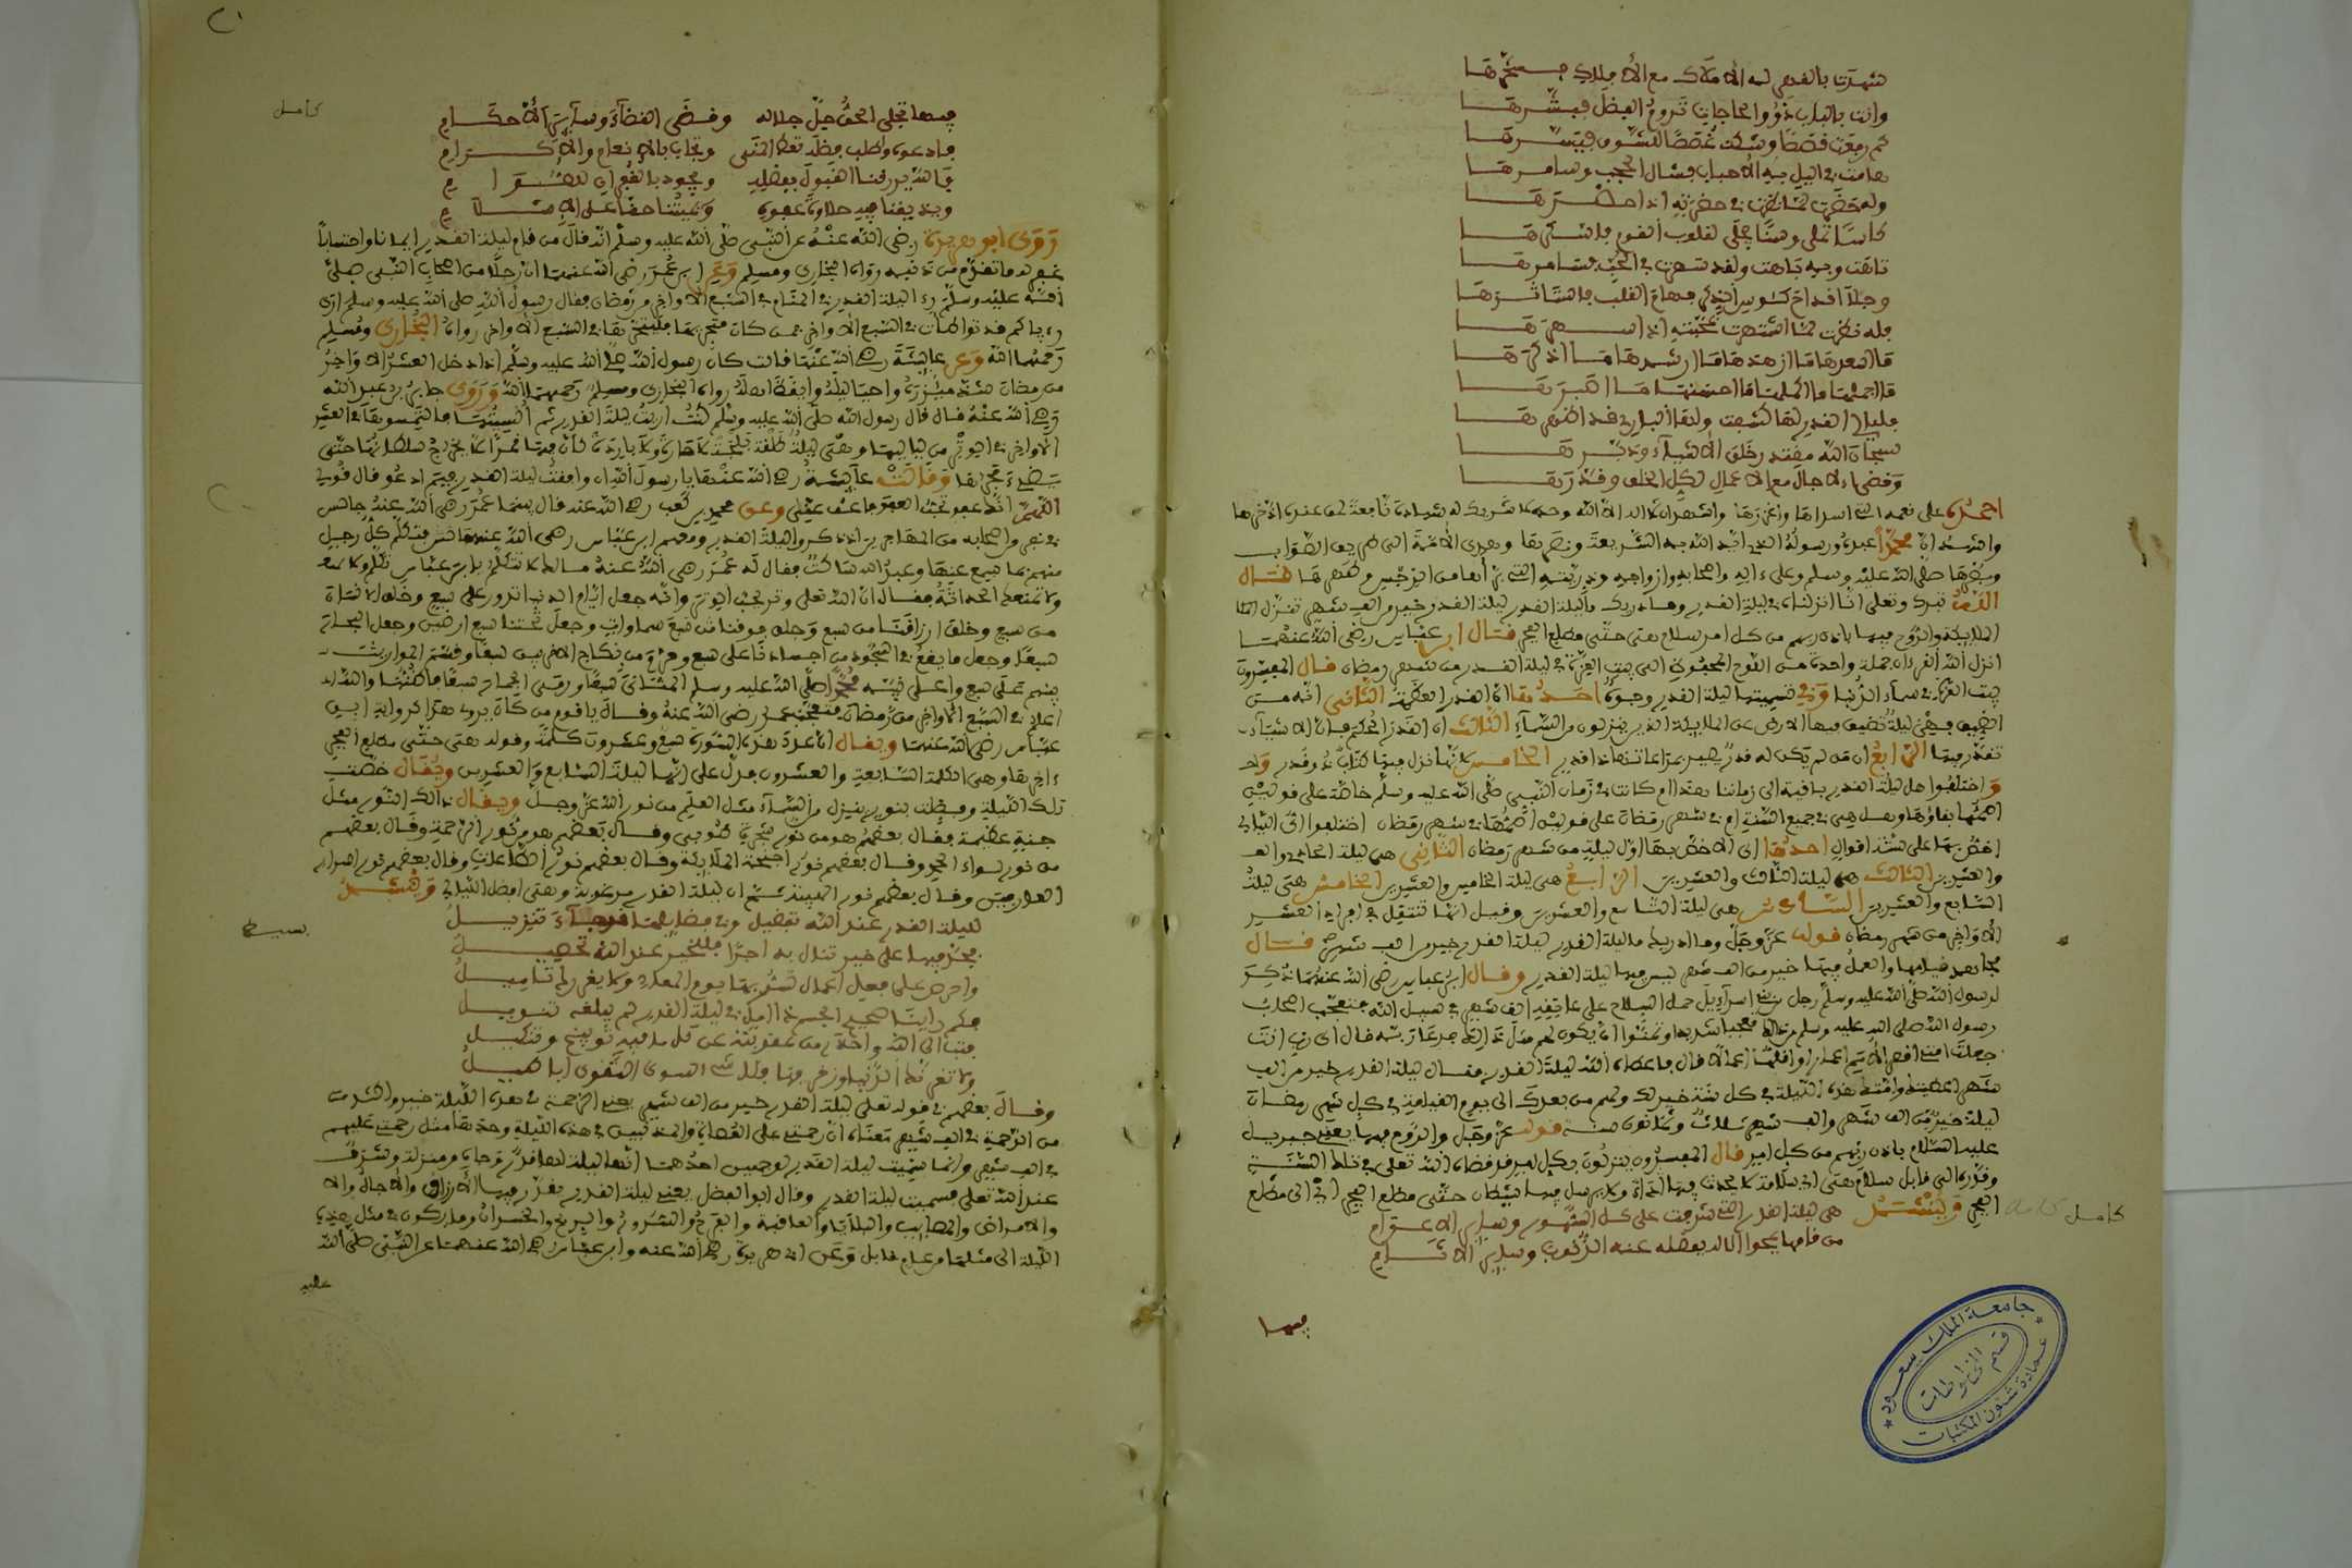 شهدت بالقدر له الأملاك مع الأفلاك
وأتت بالباب ذوو الحاجات تروم الفضل فبشرها
كم رفعت قصصا وشكت غصصا
قامت في الليل
ولقد حضرت لما نظرت في حضرته إذ أحضرها
كأسا تملى وسنا يجلى لقلوب القوم
تاهت وبه باهت ولقد سهرت في الحب
وجلا أقداح كؤوس
فله نظرت لما اشتهرت بمحبته إذ أسهرها
ما أسعدها ما أزهدها ما أرشدها ما أذكرها
ما أجملها ما أكملها ما أحسنها ما أكبرها
فليالي القدر لها كشفت ولها الباري قد أظهرها
سبحان الله مقتدر خلق الأشياء ودبرها
وقضى الآجال مع الأعمال لكل الخلق وقدرها
أحمده على نعمه التي أسداها وأغزرها وأشهد أن لا إله إلا الله وحده لا شريك له شهادة نافعة لمن عنده ادخرها
وأشهد أن محمدا عبده ورسوله الذي أيد الله به الشريعة ونصرها وهدى الأمة إلى طريق الصواب
وبصرها صلى الله عليه وسلم وعلى آله وأصحابه وأزواجه وذريته التي نزهها من الرجس وطهرها قال
الله تبارك وتعالى إنا أنزلناه في ليلة القدر وما أدراك ما ليلة القدر ليلة القدر خير من ألف شهر تنزل
الملائكة والروح فيها بإذن ربهم من كل أمر سلام هي حتى مطلع الفجر قال ابن عباس رضي الله عنهما
أنزل الله القرآن جملة واحدة من اللوح المحفوظ إلى بيت العزة في ليلة القدر من شهر رمضان قال المفسرون
بيت العزة في سماء الدنيا وفي تسميتها ليلة القدر وجوه أحدها أن القدر العظمة الثاني أنه من
الضيق فهي ليلة تضيق فيها الأرض عن الملائكة الذين ينزلون من السماء الثالث أن القدر الحكم فإن الأشياء
تقدر فيها الرابع أن من لم يكن له قدر يصير بمراعاتها ذا قدر الخامس لأنها نزل فيها كتاب ذو قدر
واختلفوا هل ليلة القدر باقية إلى زماننا هذا أم كانت في زمان النبي صلى الله عليه وسلم خاصة على قولين
أصحهما بقاؤها وهل هي في جميع السنة أم في شهر رمضان على قولين أصحهما في شهر رمضان اختلفوا في أي الليالي
أخص بها على ستة أقوال أحدها أن الأخص بها أول ليلة من شهر رمضان الثاني هي ليلة الحادي
والعشرين الثالث هي ليلة الثالث والعشرين الرابع هي ليلة الخامس والعشرين الخامس هي ليلة
السابع والعشرين السادس هي ليلة التاسع والعشرين وقيل إنها تنتقل في أفراد العشر
الأواخر من شهر رمضان قوله عز وجل وما أدريك ما ليلة القدر ليلة القدر خير من ألف شهر قال
مجاهد قيامها والعمل فيها خير من ألف شهر ليس فيها ليلة القدر وقال ابن عباس رضي الله عنهما ذكر
لرسول الله صلى الله عليه وسلم رجل من بني إسرائيل حمل السلاح على عاتقه ألف شهر في سبيل الله فتعجب أصحاب
رسول الله صلى الله عليه وسلم من ذلك عجبا شديدا وتمنوا أن يكون لهم مثل ذلك فدعا ربه فقال أي رب أنت
جعلت أمتي أقصر الأمم أعمارا وأقلها أعمالا قال فأعطاه الله ليلة القدر فقال ليلة القدر خير من ألف
شهر أعطيتك وأمتك هذه الليلة في كل سنة خير لك ولهم من بعدك إلى يوم القيامة في كل شهر رمضان
ليلة خير من ألف شهر وألف شهر ثلاث وثمانون سنة قوله عز وجل والروح فيها يعني جبريل
عليه السلام بإذن ربهم من كل أمر قال المفسرون ينزلون بكل أمر قد قضاه الله تعالى في تلك السنة
وقدره إلى قابل سلام هي أي سلامة لا يحدث فيها أذاة ولا يرسل فيها شيطان حتى مطلع الفجر أي إلى مطلع
الفجر وينشد هي ليلة القدر التي شرفت على كل الشهور وسائر الأعوام
كامل
من قامها يمحو الإله بفضله عنه الذنوب وسائر الآثام
فيها
جامعة الملك سعود
قسم المخطوطات
عمادة شئون المكتبات
كامل
فيها تجلى الحق جل جلاله وقضى القضاء وسائر الأحكام
فادعوه واطلب فضله تعط المنى وتجاب بالإنعام والإكرام
فالله يرزقنا القبول بفضله ويجود بالغفران للصوام
ويذيقنا فيه حلاوة عفوه ويميتنا حقا على الإسلام
روى أبو هريرة رضي الله عنه عن النبي صلى الله عليه وسلم أنه قال من قام ليلة القدر إيمانا واحتسابا
غفر له ما تقدم من ذنبه رواه البخاري ومسلم وعن ابن عمر رضي الله عنهما أن رجلا من أصحاب النبي صلى
الله عليه وسلم رءا ليلة القدر في المنام في السبع الأواخر من رمضان فقال رسول الله صلى الله عليه وسلم أرى
رءياكم قد تواطأت في السبع الأواخر فمن كان متحريها فليتحرها في السبع الأواخر رواه البخاري ومسلم
رحمهما الله وعن عايشة رضي الله عنها قالت كان رسول الله صلى الله عليه وسلم إذا دخل العشر الأواخر
من رمضان شد مئزره وأحيا ليله وأيقظ أهله رواه البخاري ومسلم رحمهما الله وروى جابر بن عبد الله
رضي الله عنه قال قال رسول الله صلى الله عليه وسلم كنت أريت ليلة القدر ثم أنسيتها فالتمسوها في العشر
الأواخر في الوتر من لياليها وهي ليلة طلقة بلجة لا حارة ولا باردة كأن فيها قمرا لا يخرج شيطانها حتى
يضيء فجرها وقالت عائشة رضي الله عنها يا رسول الله إن وافقت ليلة القدر فبم أدعو قال قولي
اللهم إنك عفو تحب العفو فاعف عني وعن محمد بن كعب رضي الله عنه قال بينما عمر رضي الله عنه جالس
في نفر من أصحابه من المهاجرين إذ ذكروا ليلة القدر ومعهم ابن عباس رضي الله عنهما فتكلم كل رجل
منهم بما سمع عنها وعبد الله ساكت فقال له عمر رضي الله عنه مالك لا تتكلم يا ابن عباس تكلم
ولا تمنعك الحداثة فقال إن الله تعالى وتر يحب الوتر وإنه جعل أيام الدنيا تدور على سبع وخلق الإنسان
من سبع وخلق أرزاقنا من سبع وخلق فوقنا سبع سماوات وجعل تحتنا سبع أرضين وجعل البحار
سبعة وجعل ما يقع في السجود من أجسادنا على سبع وحرم من نكاح الأقربين سبعا وقسم المواريث
بينهم على سبع وأعطى نبيه محمدا صلى الله عليه وسلم المثاني سبعا ورمى الجمار سبعا فأظنها والله
أعلم في السبع الأواخر من رمضان فتعجب عمر رضي الله عنه وقال يا قوم من كان يروي هذا كرواية ابن
عباس رضي الله عنهما ويقال إن عدد هذه السورة سبع وعشرون كلمة وقوله هي حتى مطلع الفجر
ءاخرها وهي الكلمة السابعة والعشرون فدل على أنها ليلة السابع والعشرين ويقال خصت
تلك الليلة وفضلت بنور ينزل من السماء مثل العلم من نور الله عز وجل ويقال ذلك النور مثل
جنة عظيمة فقال بعضهم هو من نور شجرة طوبى وقال بعضهم هو من نور الرحمة وقال بعضهم
من نور لواء الحمد وقال بعضهم نور أجنحة الملائكة وقال بعضهم نور الطاعات وقال بعضهم نور أسرار
العارفين وقال بعضهم نور الهيبة ثم إن ليلة القدر مرغوبة وهي أفضل الليالي وينشد
لليلة القدر عند الله تفضيل وفي فضائلها قد جاء تنزيل
بسيط
فجد فيها على خير تنال به أجرا فللخير عند الله تحصيل
واحرص على فعل أعمال تسر بها يوم المعاد ولا يغررك تأميل
فكم رأينا صحيح الجسم ذا أمل في ليلة القدر لم يبلغه تسويل
فتب إلى الله واحذر من عقوبته عن كل ما فيه توبيخ وتنكيل
ولا تغرنك الدنيا وزخرفها فكل شيء سوى التقوى أباطيل
وقال بعضهم في قوله تعالى ليلة القدر خير من ألف شهر يعني الرحمة في هذه الليلة خير
من الرحمة في ألف شهر معناه أن رحمتي على العصاة والمذنبين في هذه الليلة وحدها مثل رحمتي عليهم
في ألف شهر وإنما سميت ليلة القدر لوجهين أحدهما أنها ليلة لها قدر ودرجات ومنزلة وشرف
عند الله تعالى فسميت ليلة القدر وقال أبو الفضل يعني ليلة القدر يقدر فيها الأرزاق والآجال
والأمراض والمصائب والبلايا والعافية والفرح والسرور والربح والخسران وما يكون في مثل هذه
الليلة إلى مثلها من عام قابل وعن أبي هريرة رضي الله عنه وابن عباس رضي الله عنهما عن النبي صلى الله
عليه